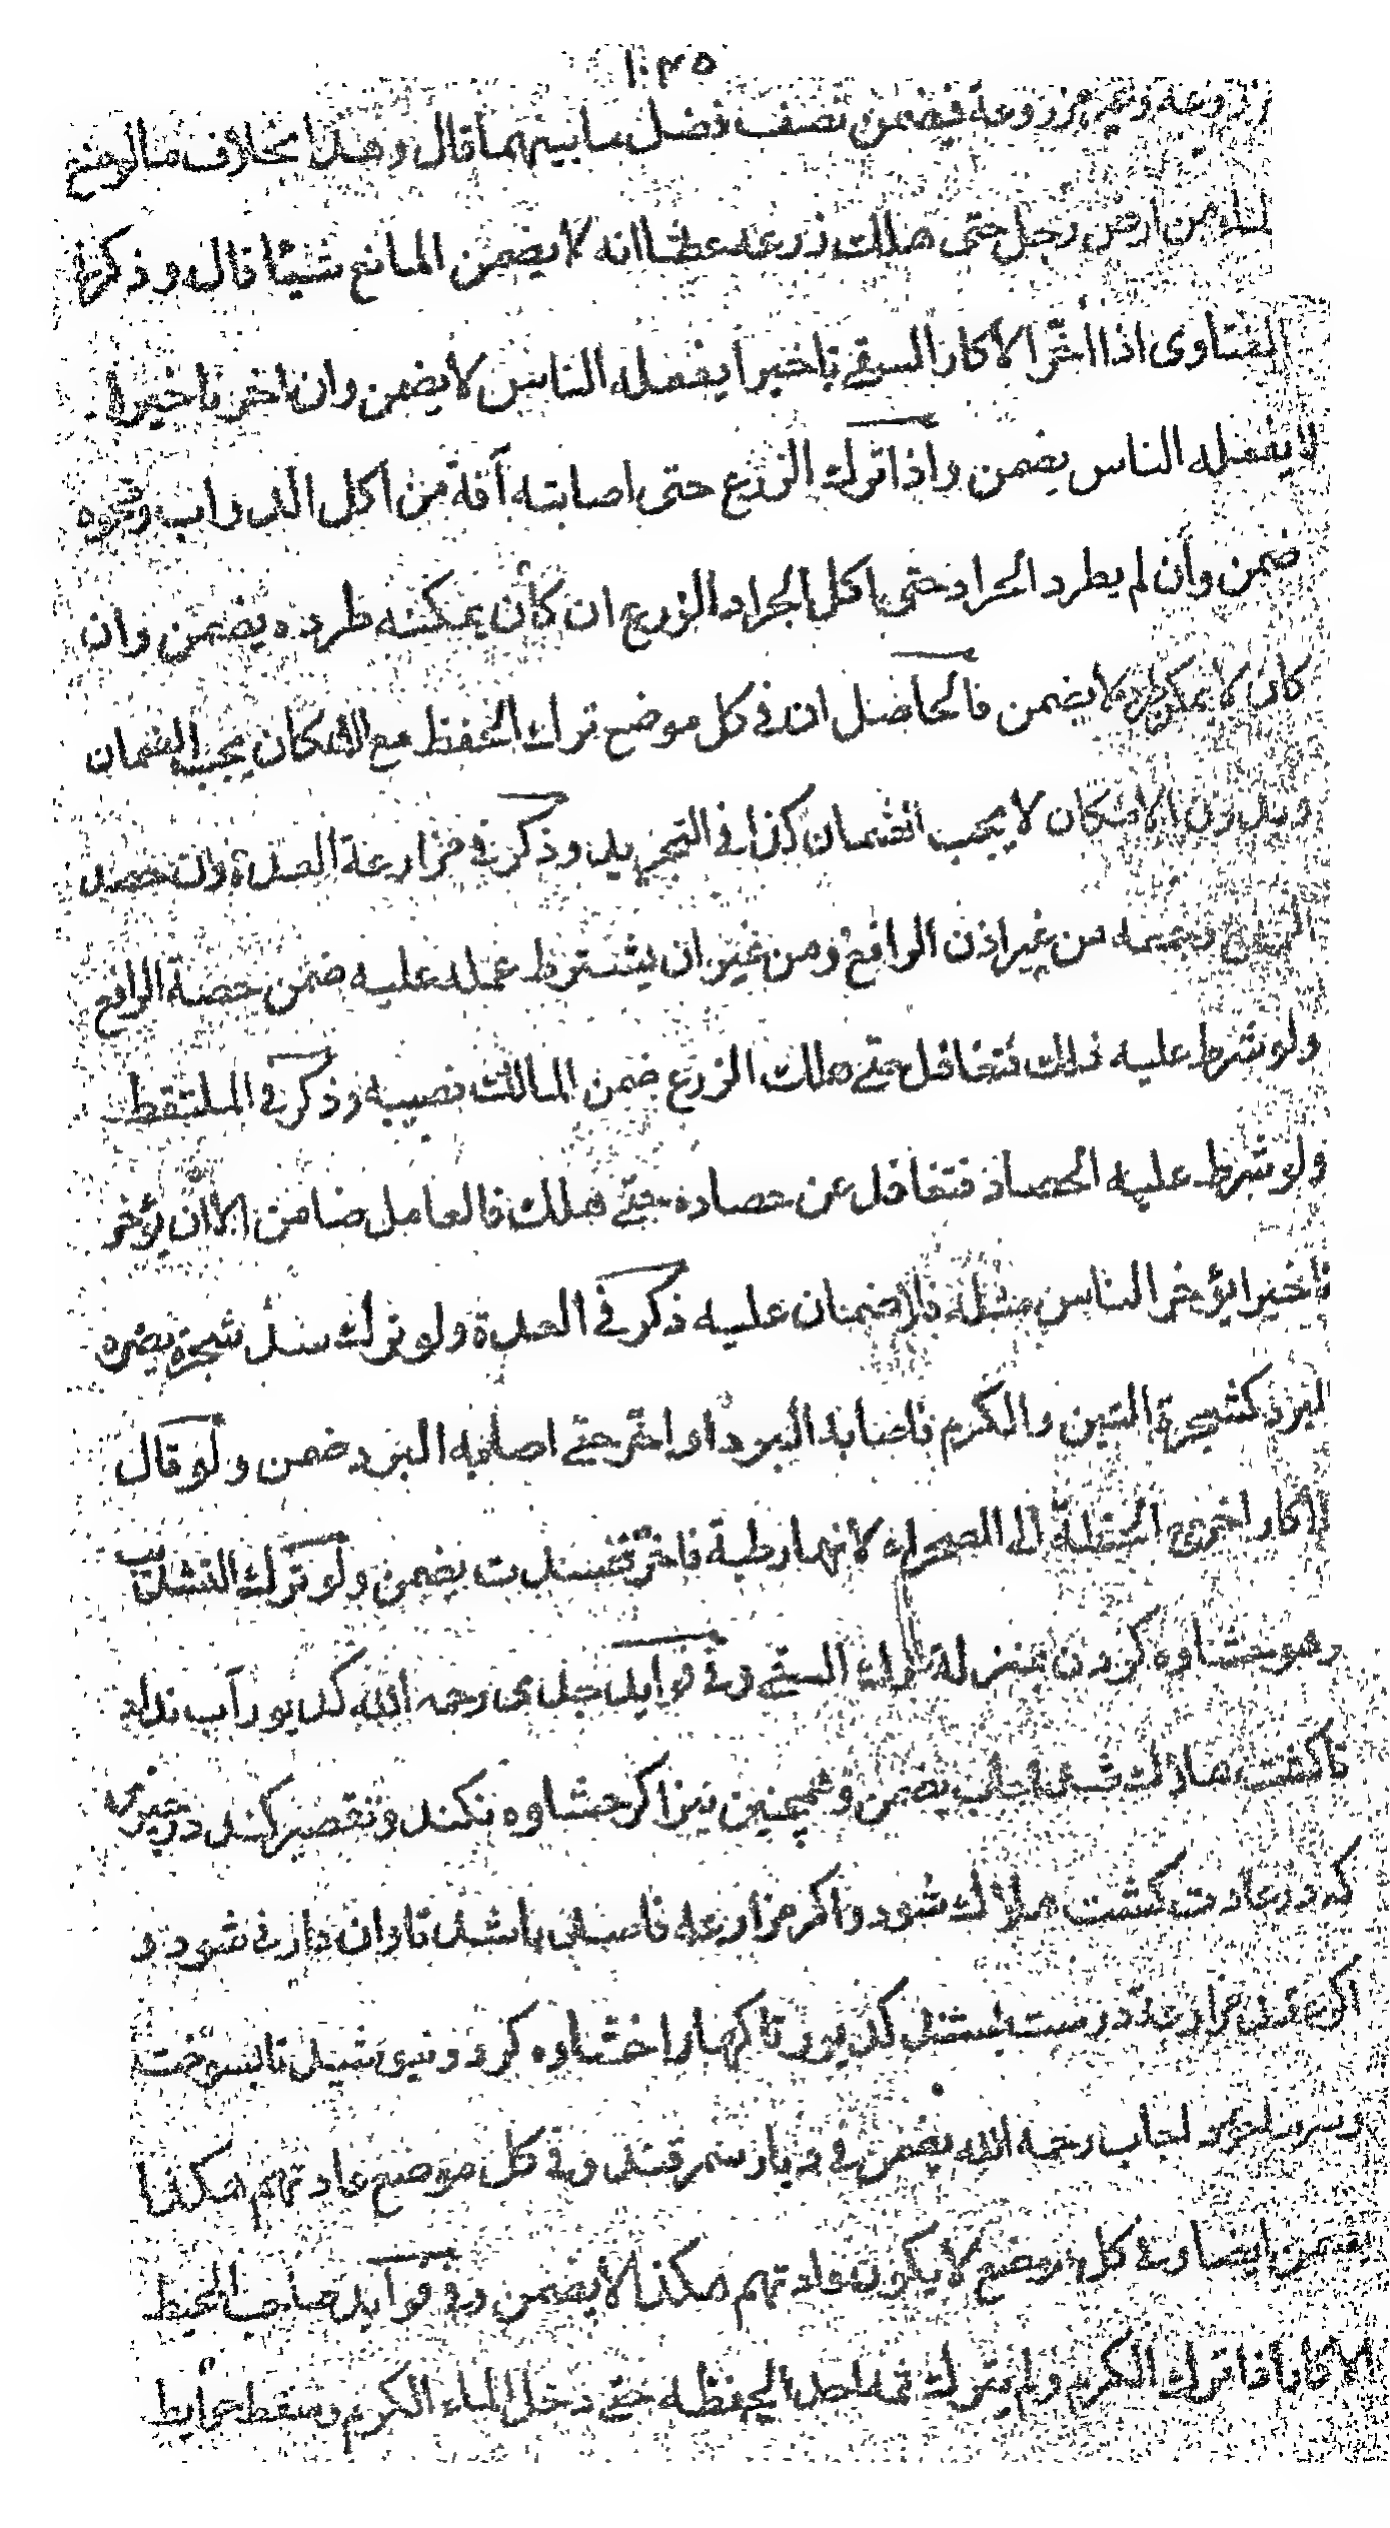 ١٠٣٥
زروعة وغير مزروعة فيضمن نصف فضل ما بينهما قال وهذا بخلاف ما لو منع
الماء من ارض رجل حتى هلك زرعه عطشا انه لا يضمن المانع شيئا قال وذكر في
الفتاوى اذا أخّر الاكار السقي تاخيرا يفعله الناس لا يضمن وان اخر تاخيرا
لا يفعله الناس يضمن واذا ترك الزرع حتى اصابته آفة من اكل الدواب ونحوه
ضمن وان لم يطرد الجراد حتى ياكل الجراد الزرع ان كان يمكنه طرده يضمن وان
كان لا يمكن طرده لا يضمن فالحاصل ان في كل موضع ترك الحفظ مع الامكان يجب الضمان
وبدون الامكان لا يجب الضمان كذا في التجريد وذكر في مزارعة العدة وان حصد
وجمعه من غير اذن الرافع ومن غير ان يشترط عمله عليه ضمن حصة الرافع
ولو شرط عليه ذلك فتغافل حتى هلك الزرع ضمن المالك نصيبه وذكر في الملتقط
ولو شرط عليه الحصاد فتغافل عن حصاده حتى هلك فالعامل ضامن الا ان يؤخر
تاخيرا يؤخر الناس مثله فلا ضمان عليه ذكر في العدة ولو ترك سد شجرة يضره
البرد كشجرة التين والكرم فاصابه البرد او اخّر حتى اصابه البرد ضمن ولو قال
للاكار اخرج الحنطة الى الصحراء لانها رطبة فاخّر ففسدت يضمن ولو ترك التشذيب
وهو خشاوه كردن بمنزلة ترك السقي وفي فوايد جدي رحمه الله كديور آب نداد
تا كشت هلاك شد اجاب يضمن وهمچنين نيز اكر خشاوه نكند وتقصير كند در چيزى
كه در عادت كشت هلاك شود واكر مزارعه فاسد باشد تاوان دار نى شود و
اكر عقد مزارعة درست كديور تا كهارا خشاوه كرد و نپوشيد تا بسوخت
اجاب رحمة الله يضمن في ديار سمرقند وفي كل موضع عادتهم هكذا
يضمن ايضا وفي كل موضع لا يكون عادتهم هكذا لا يضمن وفي فوايد صاحب المحيط
الاكار اذا ترك الكرم ولم يترك ثمه احدا ليحفظه حتى دخل الماء الكرم وسقط حوايط